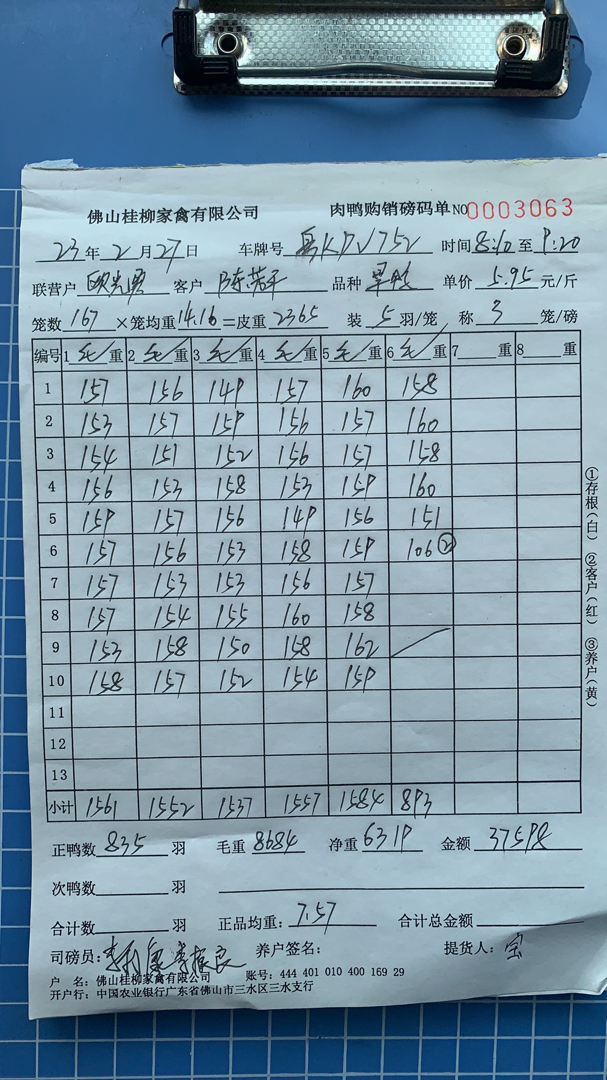 佛山桂柳家禽有限公司 肉鸭购销磅码单 NO 0003063
23年2月27日 车牌号 粤KDV752 时间 8:10至9:20
联营户 客户 品种 单价 5.95 元/斤
笼数 167 ×笼均重 14.16 =皮重 2365 装 5 羽/笼 称 3 笼/磅
编号 1 毛重 2 毛重 3 毛重 4 毛重 5 毛重 6 毛重 7 重 8 重
1 157 156 149 157 160 158
2 153 157 159 156 157 160
3 154 151 152 156 157 158
4 156 153 158 153 159 160
5 159 157 156 149 156 151
6 157 156 153 158 159 106②
7 157 153 153 156 157
8 157 154 155 160 158
9 153 158 150 158 162
10 158 157 152 154 159
11
12
13
小计 1561 1552 1537 1557 1584 893
正鸭数 835 羽 毛重 8684 净重 6319 金额 37598
次鸭数 羽
合计数 羽 正品均重: 7.57 合计总金额
司磅员: 养户签名: 提货人: 宝
户 名: 佛山桂柳家禽有限公司 账号: 444 401 010 400 169 29
开户行: 中国农业银行广东省佛山市三水区三水支行
①存根(白) ②客户(红) ③养户(黄)